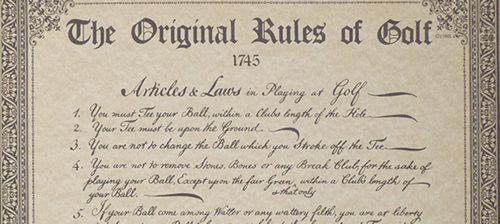 The Original Rules of Golf
1745
Articles & Laws in Playing at Golf
1. You must Tee your Ball, within a Clubs length of the Hole.
2. Your Tee must be upon the Ground.
3. You are not to change the Ball which you Stroke off the Tee.
4. You are not to remove Stones, Bones or any Break Club, for the sake of
playing your Ball, Except upon the fair Green, within a Club's length of
your Ball. & that only
5. If your Ball come among Watter or any wattery filth, you are at liberty